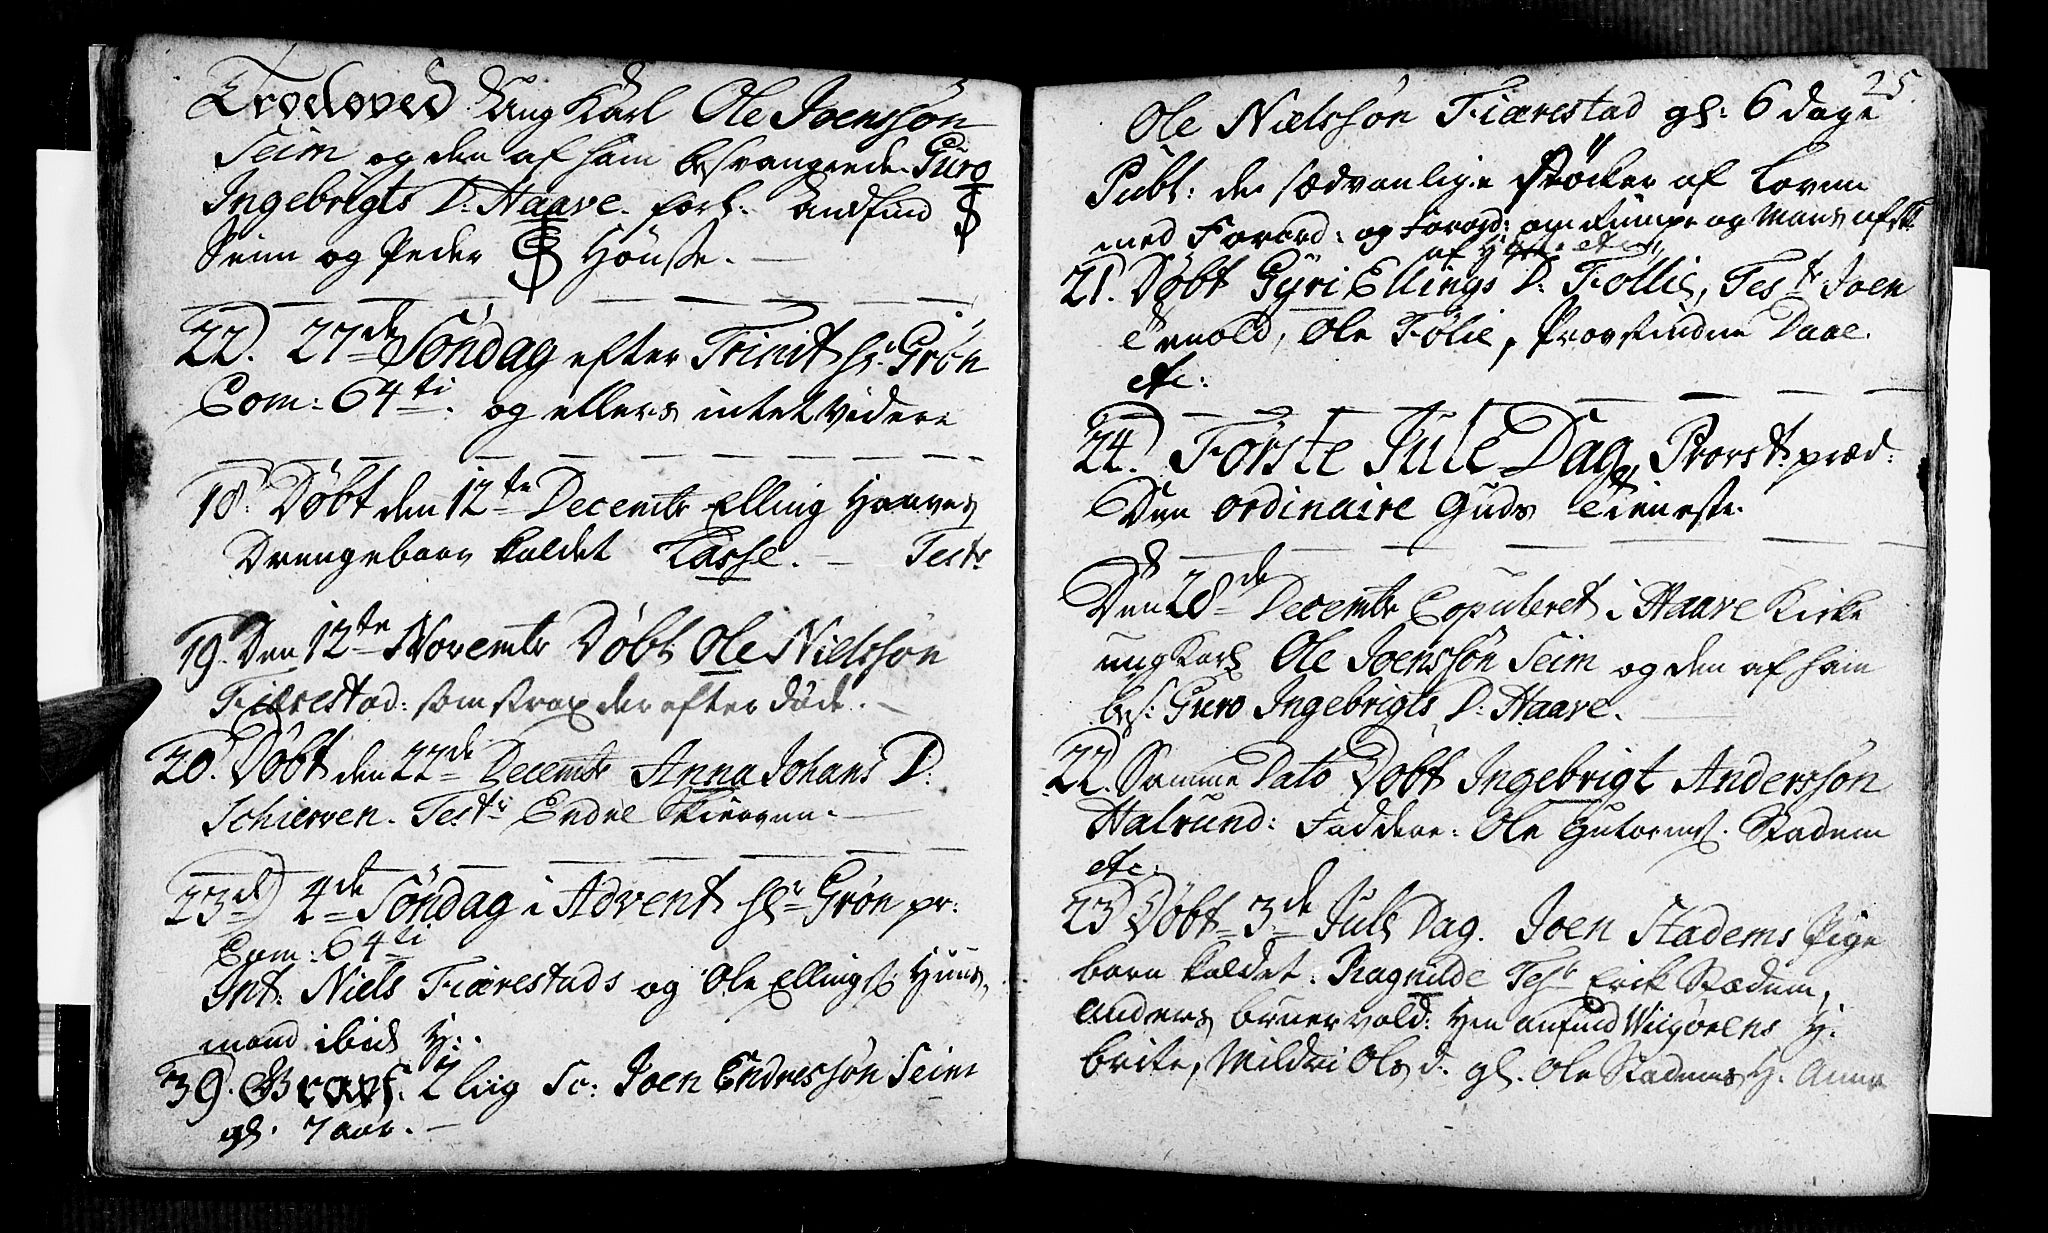 Troloved Ung Karl Ole Joenssøn
Seim og den af ham besvangrede Guro
Ingebrigts D: Haave. forl. Andfind S
Seim og Peder S Hönsse.
22. 27de Söndag efter Trinit hr. Grøn
Com: 64ti. og ellers intet videre
18. Döbt den 12te Decembr Elling Haaves
Drengebarn kaldet Lasse. – Test:
19. Den 12te Novembr Döbt Ole Nielssøn
Fiærestad: som strax derefter döde.
20. Döbt den 22de Decembr Anna Johans D:
Schierven. Test: Endre Skierven.
23de) 4de Söndag i Advent Hr Grön pr:
Com: 64ti
Int: Niels Fiærestads og Ole Ellings: Huus-
mand ibid H:.
39. Begrav. 2 liig Sc: Joen Endressøn Seim
gl. 7 aar.
25.
Ole Nielssön Fiærestad gl: 6 dage
Publ: de sædvanlige Stöcker af Loven
med Forord: og Forord: om og
21. Döbt Gyri Ellings D:Föllie, Test: Joen
Ole Fölie, Provstinden Daae.
etc:
24. Förste Jule Dag, Provst: præd:
Den ordinaire Guds Tieneste.
Den 28de Decembr Copuleret i Haave Kirke
ung Karl Ole Joenssön Seim og den af ham
bes: Guro Ingebrigts D: Haave.
22. Samme Dato Döbt Ingebrigt Anderssön
Halrund: Faddere: Ole Gutorms. Stadem
etc:
23 Döbt 3de Juls Dag. Joen Stadems Pige
barn kaldet. Ragnilde Test: Erik Stadem,
Anders H:
brite, Mildri Ols d. gl. Ole Stadems H. Anna